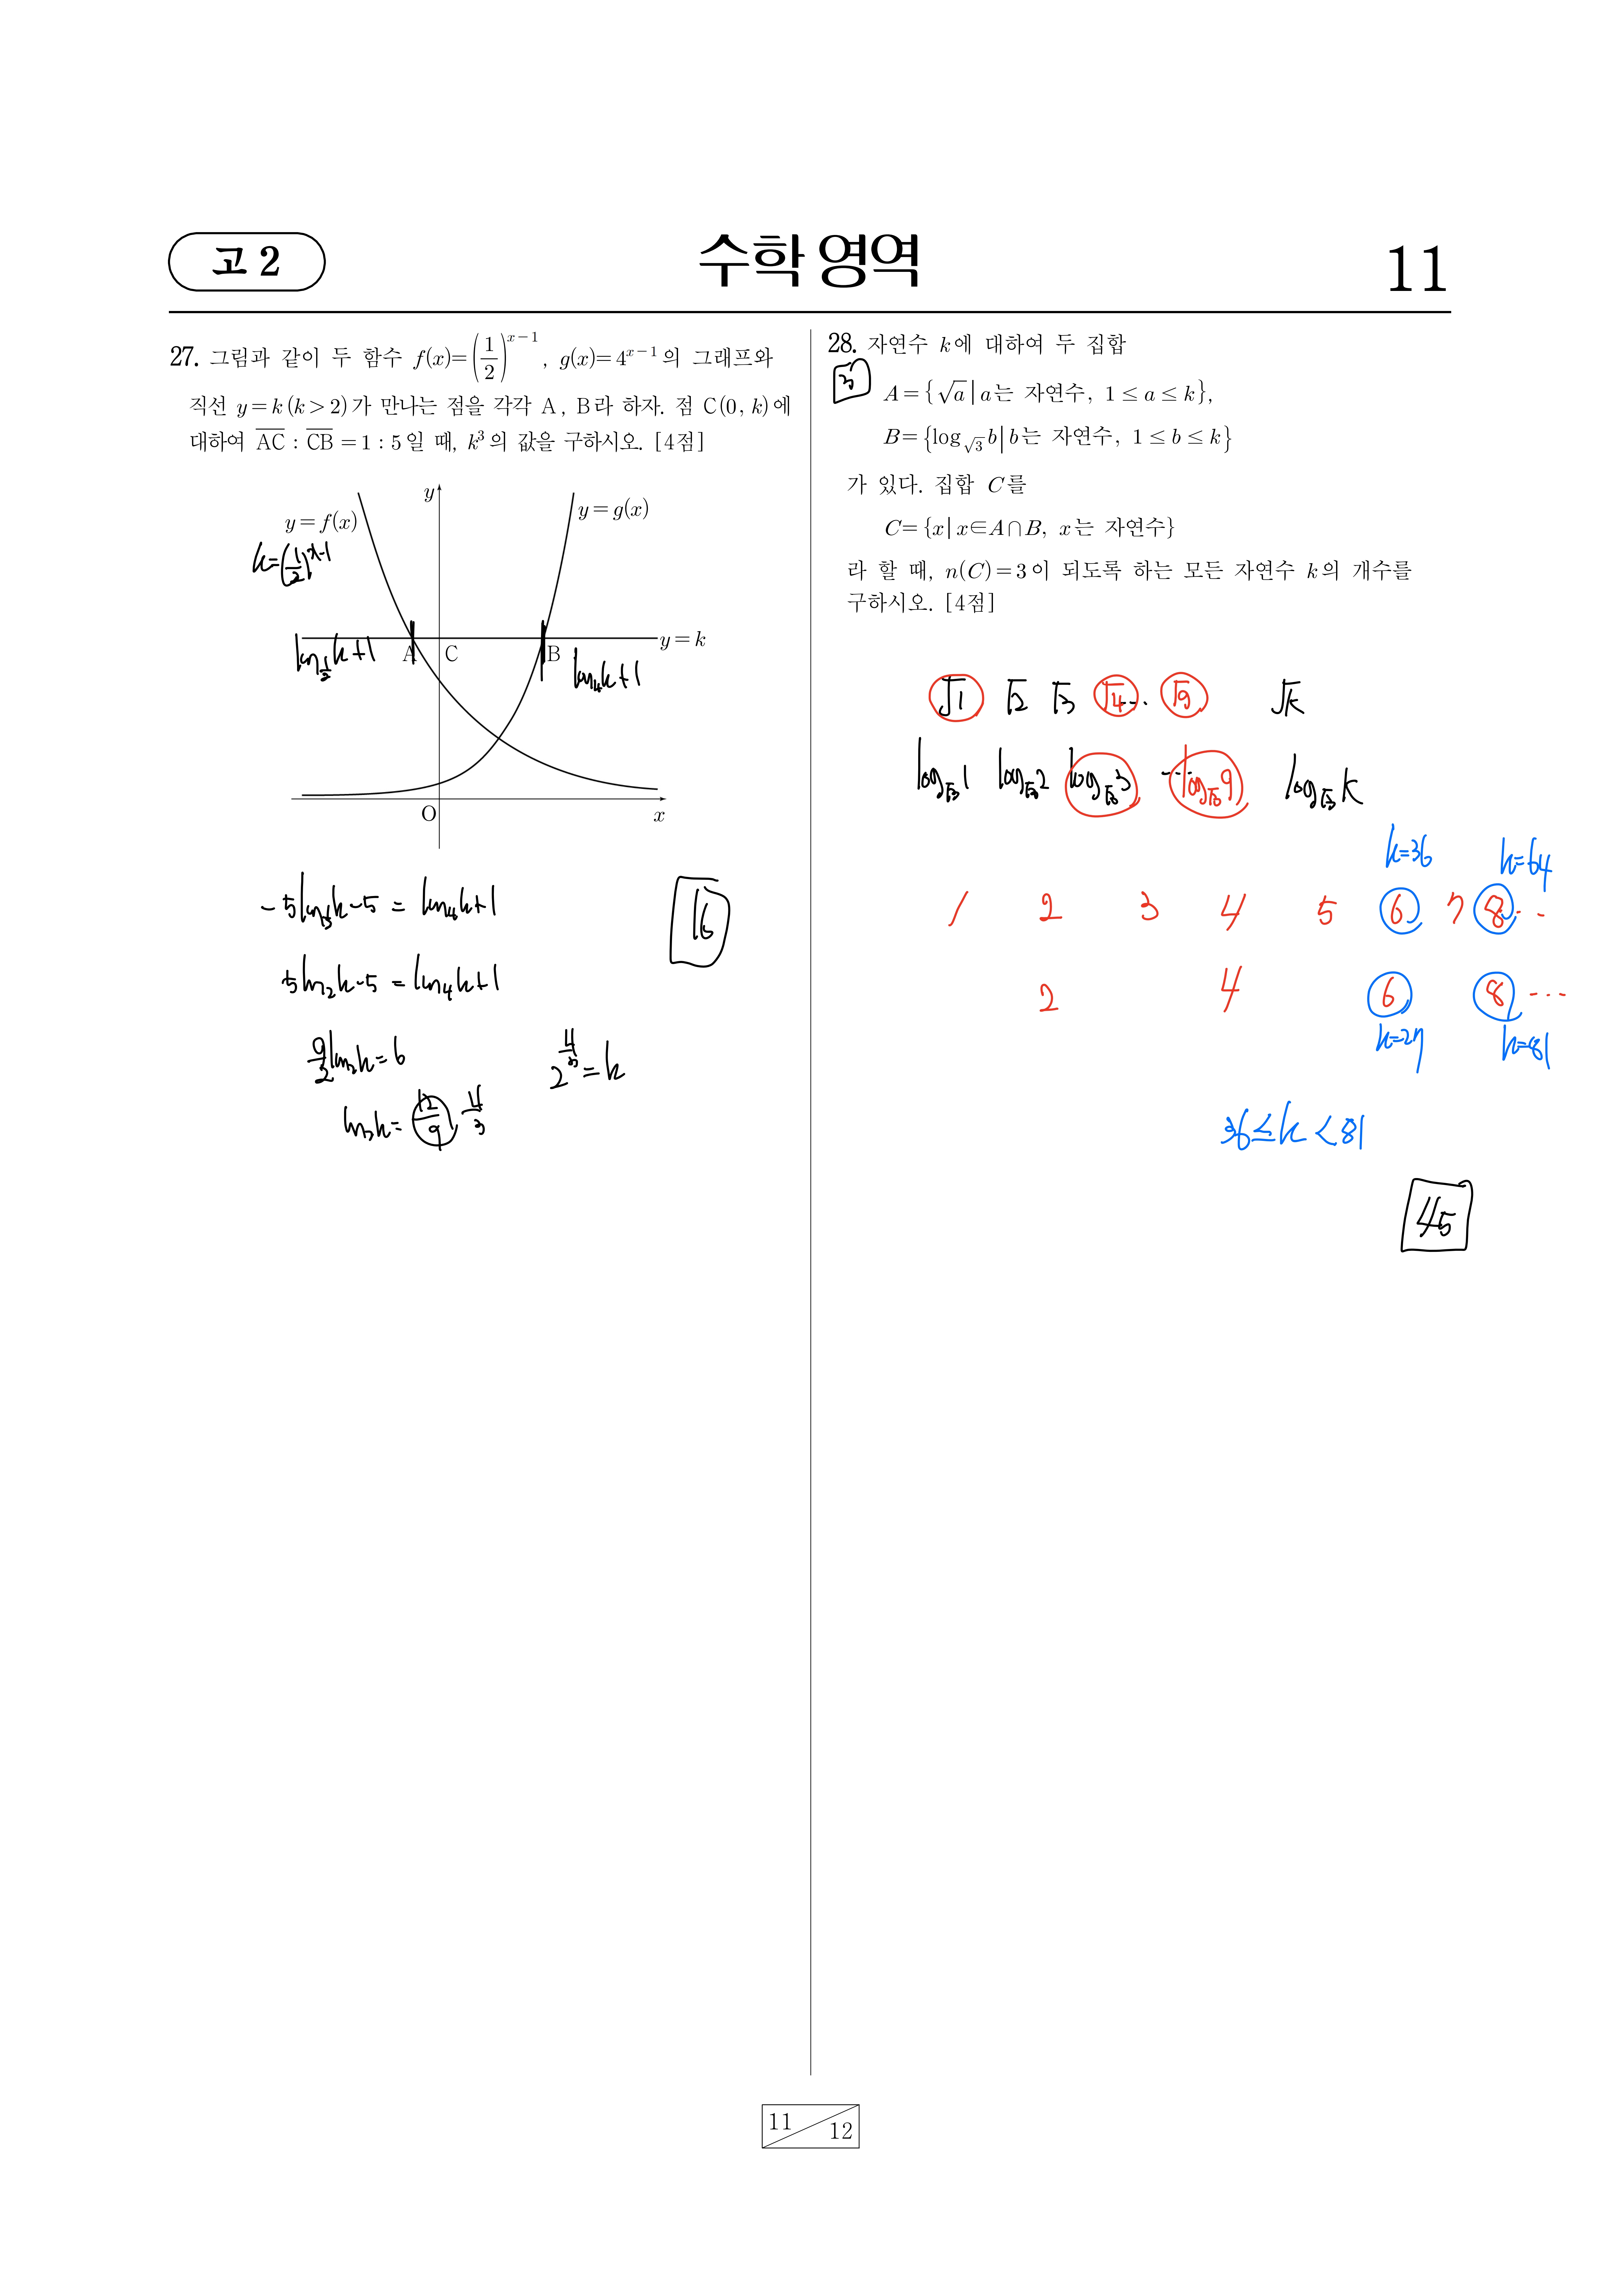 고 2
수학 영역
11
27. 그림과 같이 두 함수 f(x)=(1/2)^{x-1}, g(x)=4^{x-1}의 그래프와
직선 y=k(k>2)가 만나는 점을 각각 A, B라 하자. 점 C(0, k)에
대하여 \overline{AC} : \overline{CB} = 1 : 5일 때, k^3의 값을 구하시오. [4점]
y
y=f(x)
y=g(x)
k=(1/2)^{x-1}
y=k
A
C
B
O
x
16
9/2
=6
2^{4/3}=k
12/9
4/3
28. 자연수 k에 대하여 두 집합
3
A={√a | a는 자연수, 1≤a≤k},
B={log_{√3} b | b는 자연수, 1≤b≤k}
가 있다. 집합 C를
C={x | x∈A∩B, x는 자연수}
라 할 때, n(C)=3이 되도록 하는 모든 자연수 k의 개수를
구하시오. [4점]
√1 √2 √3 √4 ··· √9 √k
log_{√3}1 log_{√3}2 log_{√3}3 ··· log_{√3}9 log_{√3}k
k=36 k=64
1 2 3 4 5 6 7 8 ···
2 4 6 8 ···
k=27 k=81
36≤k<81
45
11
12